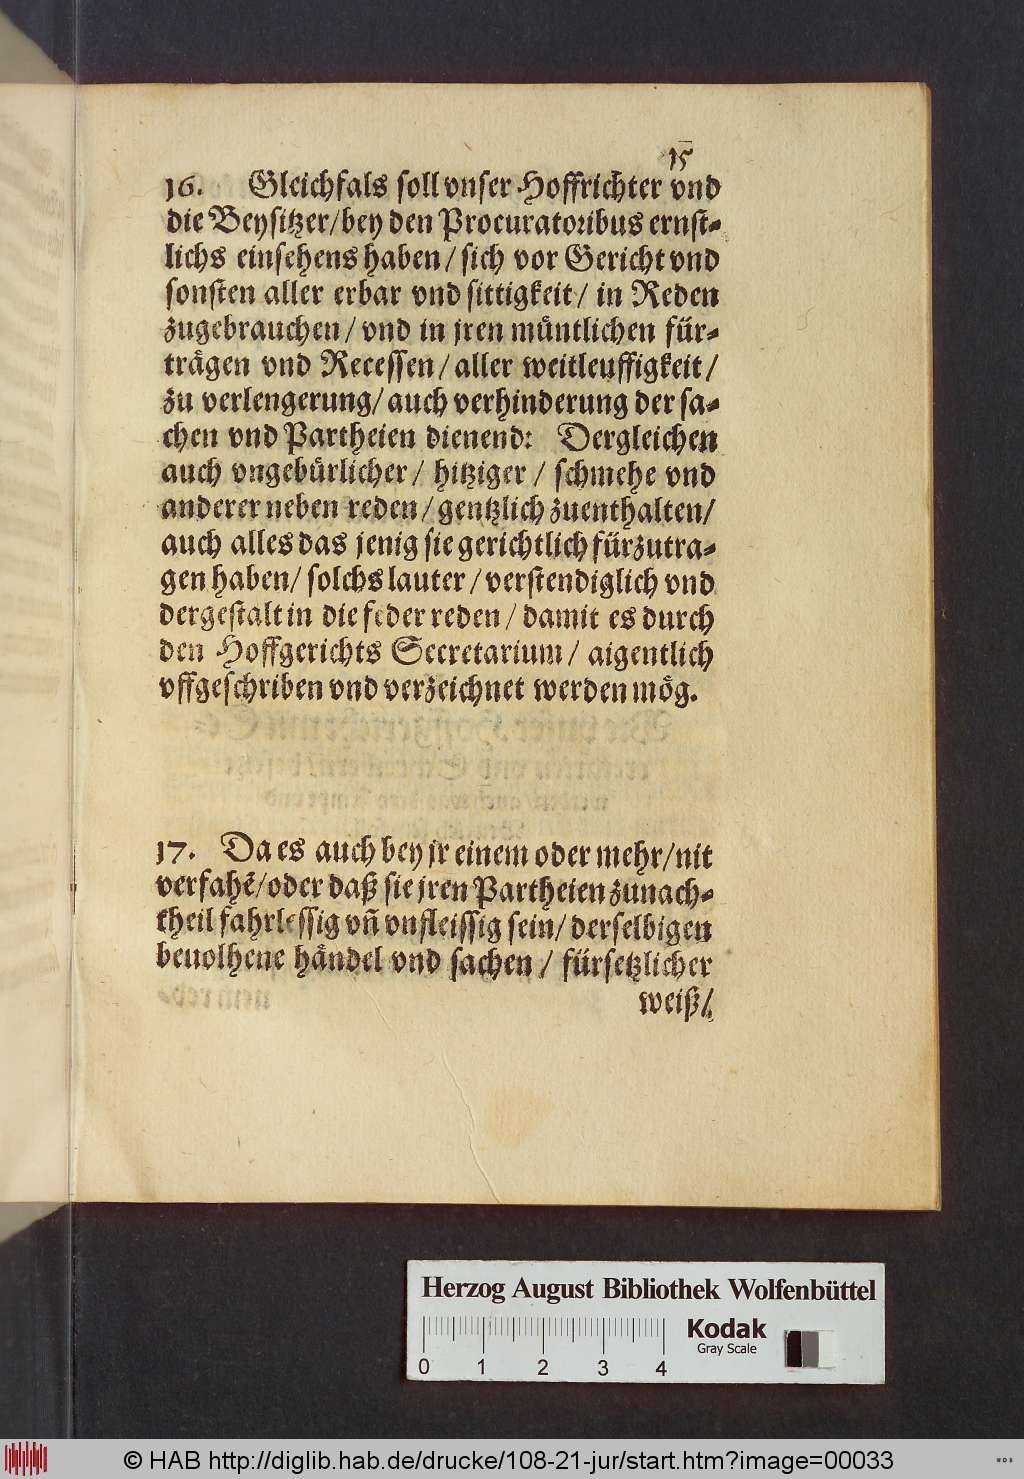 15
16. Gleichfals soll vnser Hoffrichter vnd
die Beysitzer/bey den Procuratoribus ernst-
lichs einsehens haben/ sich vor Gericht vnd
sonsten aller erbar vnd sittigkeit/ in Reden
zugebrauchen/ vnd in jren müntlichen für-
trägen vnd Recessen/ aller weitleuffigkeit/
zu verlengerung/ auch verhinderung der sa-
chen vnd Partheien dienend: Dergleichen
auch vngebürlicher/ hitziger/ schmehe vnd
anderer neben reden/ gentzlich zuenthalten/
auch alles das jenig sie gerichtlich fürzutra-
gen haben/ solchs lauter/ verstendiglich vnd
dergestalt in die feder reden/ damit es durch
den Hoffgerichts Secretarium/ aigentlich
vffgeschriben vnd verzeichnet werden mög.
17. Da es auch bey jr einem oder mehr/nit
verfahẽ/oder daß sie jren Partheien zunach-
theil fahrlessig vñ vnfleissig sein/ derselbigen
beuolhene händel vnd sachen/ fürsetzlicher
weiß/
Herzog August Bibliothek Wolfenbüttel
Kodak
Gray Scale
0 1 2 3 4
© HAB http://diglib.hab.de/drucke/108-21-jur/start.htm?image=00033